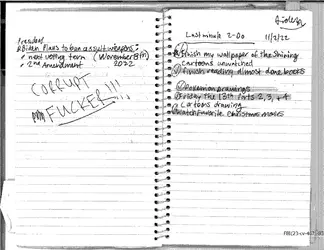 President
Biden Plans to ban assult weapons:
• next voting term (November 8th)
• 2nd Amendment 2022
CORRUPT
FUCKER!!!
Aiden
Last minute 2-Do 11/7/22
finish my wallpaper of the Shining
Cartoons unwatched
finish reading almost done books
Pokemon drawings
Friday the 13th Parts 2, 3, + 4
Cartoons drawing
watch favorite christmas movies